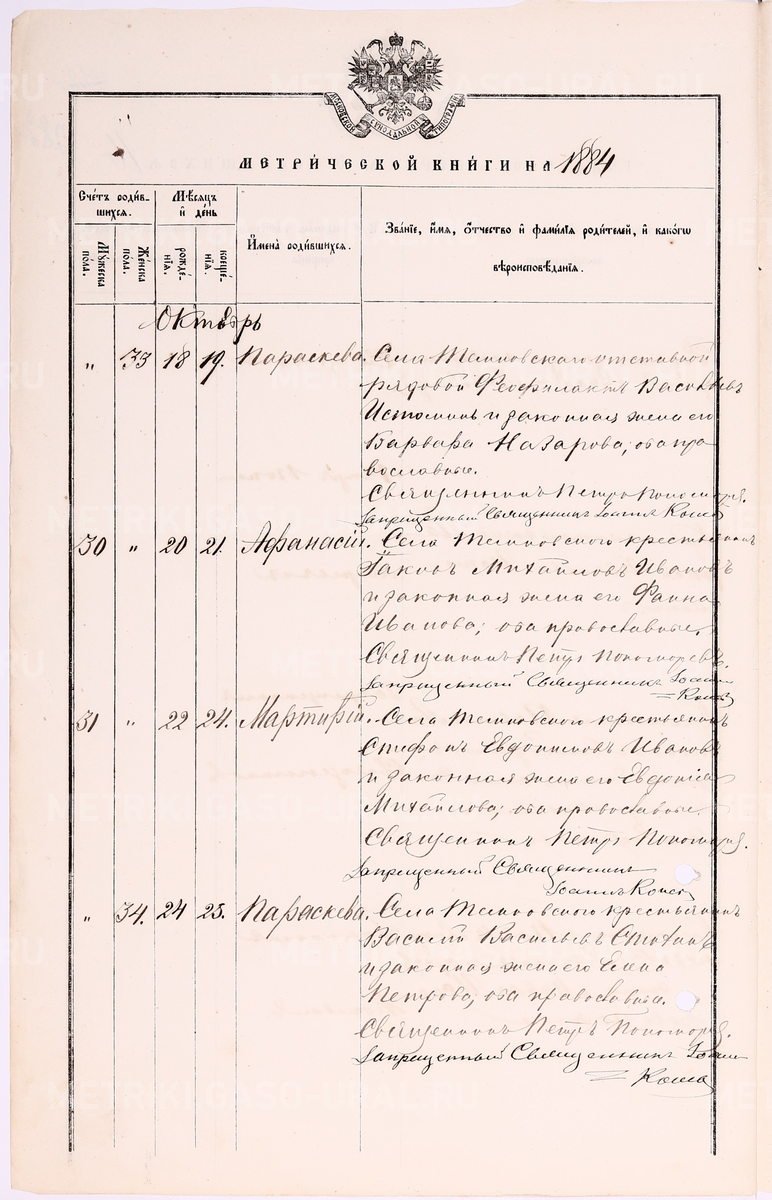 МОСКОВСКОЙ СИНОДАЛЬНОЙ ТИПОГРАФІИ
МЕТРИ́ЧЕСКОЙ КНИ́ГИ НА 1884
Сче́тъ роди́в-
шихся.
Мѣ́сяцъ
и҆ де́нь
И҆мена̀ роди́вшихся.
Зва́нїе, и҆́мя, о҆́тчество и҆ фами́лїѧ роди́телей, и҆ како́гѡ
вѣроисповѣ́данїѧ.
Му́жеска по́ла.
Же́нска по́ла.
рожде́-
нїѧ.
креще́-
нїѧ.
Октябрь
„ 33 18 19. Параскева. Села Темновскаго отставной
рядовой Феофилактъ Васильевъ
Истоминъ и законная жена его
Варвара Назарова; оба пра
вославные.
Священникъ Петръ Пономарев.
Запрещенный Священникъ Іоаннъ
30 „ 20 21. Афанасій. Села Темновского крестьянинъ
Іаковъ Михайловъ Ивановъ
и законная жена его Фаина
Иванова; оба православные.
Священникъ Петръ Пономаревъ.
Запрещенный Священникъ Іоаннъ
31 „ 22 24. Мартирій. Села Темновского крестьянинъ
Стефанъ Евдокимовъ Ивановъ
и законная жена его Евдокія
Михайлова; оба православные.
Священникъ Петръ Пономарев.
Запрещенный Священникъ
Іоаннъ
„ 34. 24 25. Параскева. Села Темновского крестьянинъ
Василій Васильевъ
и законная жена его Елена
Петрова, оба православные.
Священникъ Петръ Пономарев.
Запрещенный Священникъ Іоаннъ